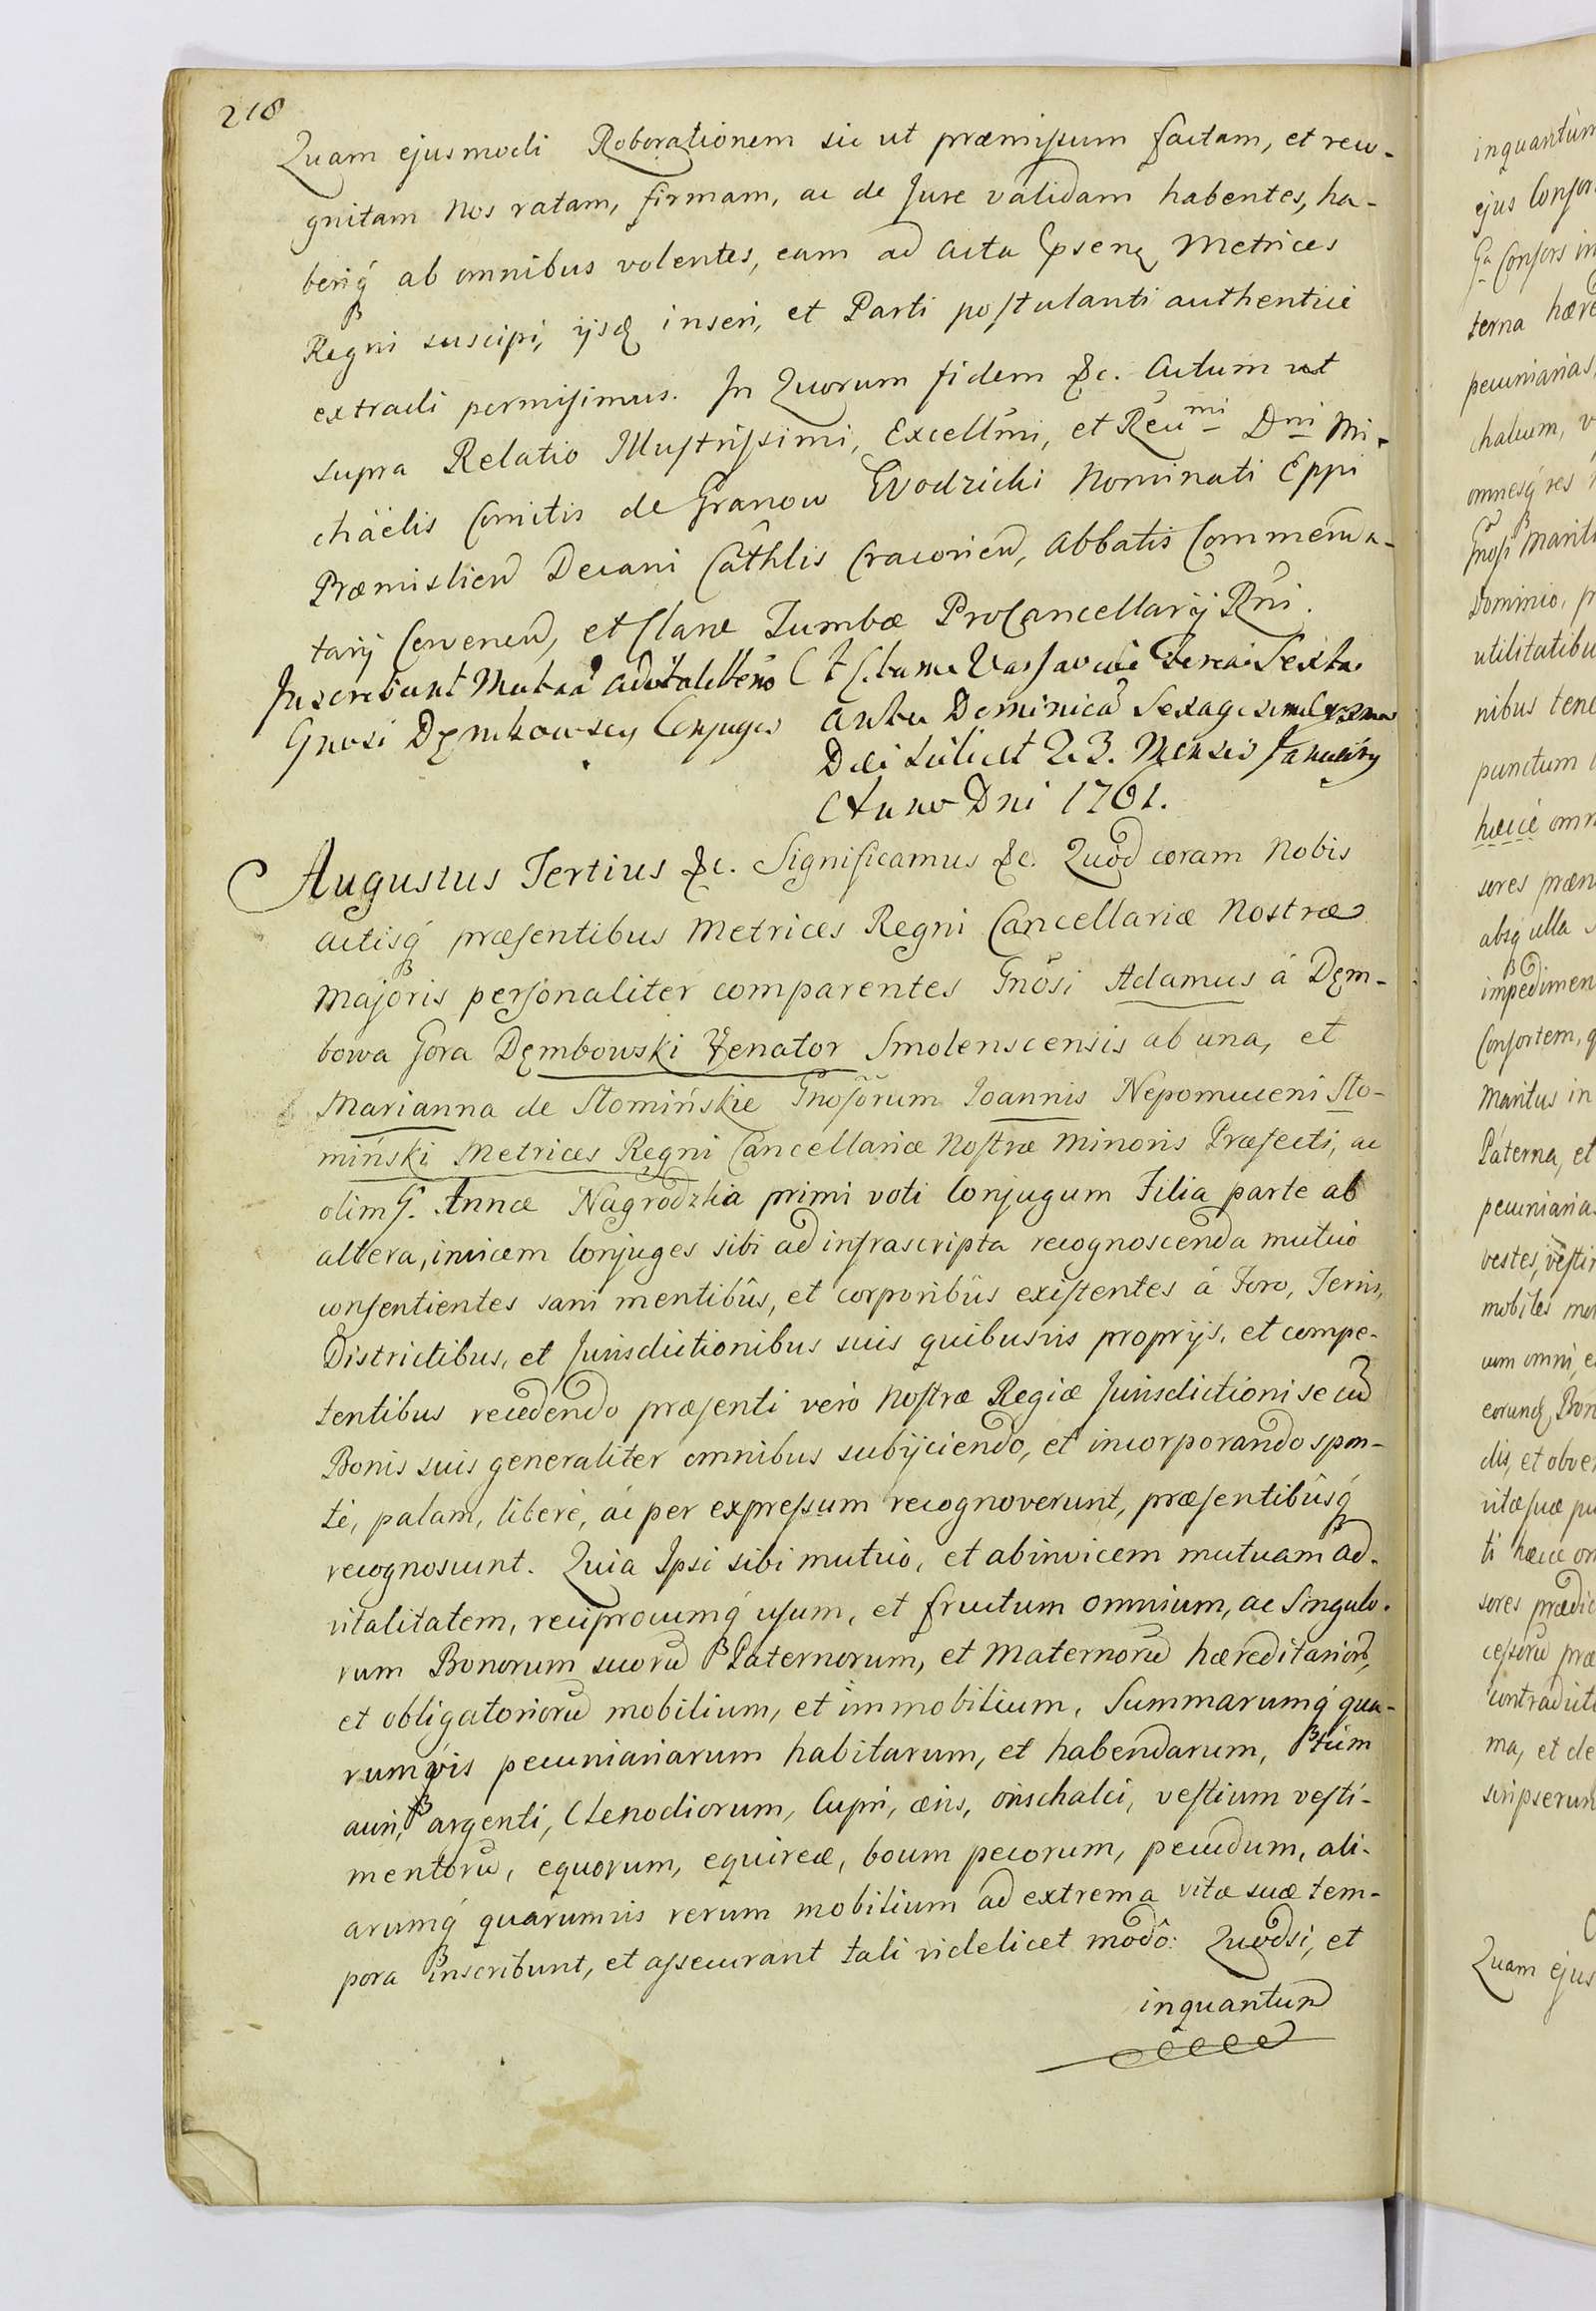 218
Quam ejusmodi Roborationem sic ut præmissum factam, et reco-
gnitam nos ratam, firmam, ac de Jure validam habentes, ha-
beriq́ ab omnibus volentes, eam ad Acta Metrices
Regni suscipi, ijsq́ inseri, et Parti postulanti authentice
extradi permisimus. In Quorum fidem &c. Actum ut
supra Relatio Illustrissimi, Excellm̃i, et Reũmi Dni Mi-
chäelis Comitis de Granow Wodzicki Nominati Eppi
Præmislien̄ Decani Cathlis Cracovien̄, Abbatis Commenda-
tarij Cervenen̄, et Claræ Tumbæ ProCancellarij Rñi.
Inscribunt Mutuã advitalittẽ
Gnosi Dęmbowscy Conjuges
Actum Varsaviæ Feria Sexta
ante Dominicã Sexagesimæ proxima
Die scilicet 23. Mensis Januarij
Anno Dni 1761.
Augustus Tertius &c. Significamus &c. Quòd coram Nobis
actisq́ præsentibus Metrices Regni Cancellariæ Nostræ
Majoris personaliter comparentes Gnõsi Adamus á Dęm-
bowa Gora Dęmbowski Venator Smolenscensis ab una, et
Marianna de Słomińskie Gnosõrum Ioannis Nepomuceni Sło-
miński Metrices Regni Cancellariæ Nostræ Minoris Præfecti, ac
olim G. Annæ Nagrodzkia primi voti Conjugum Filia parte ab
altera, invicem Conjuges sibi ad infrascripta recognoscenda mutuò
consentientes sani mentibûs, et corporibûs existentes á Foro, Terris,
Districtibus, et Jurisdictionibus suis quibusvis proprijs, et compe-
tentibus recedendo præsenti verò Nostræ Regiæ Jurisdictioni se cũ
Bonis suis generaliter omnibus subijciendo, et incorporando spon-
tè, palam, liberè, ác per expressum recognoverunt, præsentibûsq́
recognoscunt. Quia Ipsi sibi mutuò, et abinvicem mutuam ad-
vitalitatem, reciprocumq́ usum, et fructum omnium, ac Singulo-
rum Bonorum suorũ Paternorum, et Maternorũ hæreditariorũ,
et obligatoriorũ mobilium, et immobilium, Summarumq́ qua-
rumvis pecuniariarum habitarum, et habendarum,
auri, argenti, Clenodiorum, Cupri, æris, orischalci, vestium vesti-
mentorũ, equorum, equireæ, boum pecorum, pecudum, ali-
arumq́ quarumvis rerum mobilium ad extrema vitæ suæ tem-
pora inscribunt, et assecurant tali videlicet modô: Quodsi, et
inquantum
inquantùm
ejus Consor
Ga Consors in
terna hære
pecuniarias,
omnesq́ res
Gnosi Mariti
Dominio, p
utilitatibu
nibus tene
punctum
hæcce omn
absq́ ulla
impedimen
Consortem, q
Maritus in
Páterna, et
pecuniaria
vestes, vesti
mobiles
eorund, Bon
vitæ suæ pu
ti hæcce om
sores prædic
cessorũ præ
contradicti
ma, et de
scripserun
Quam ejus